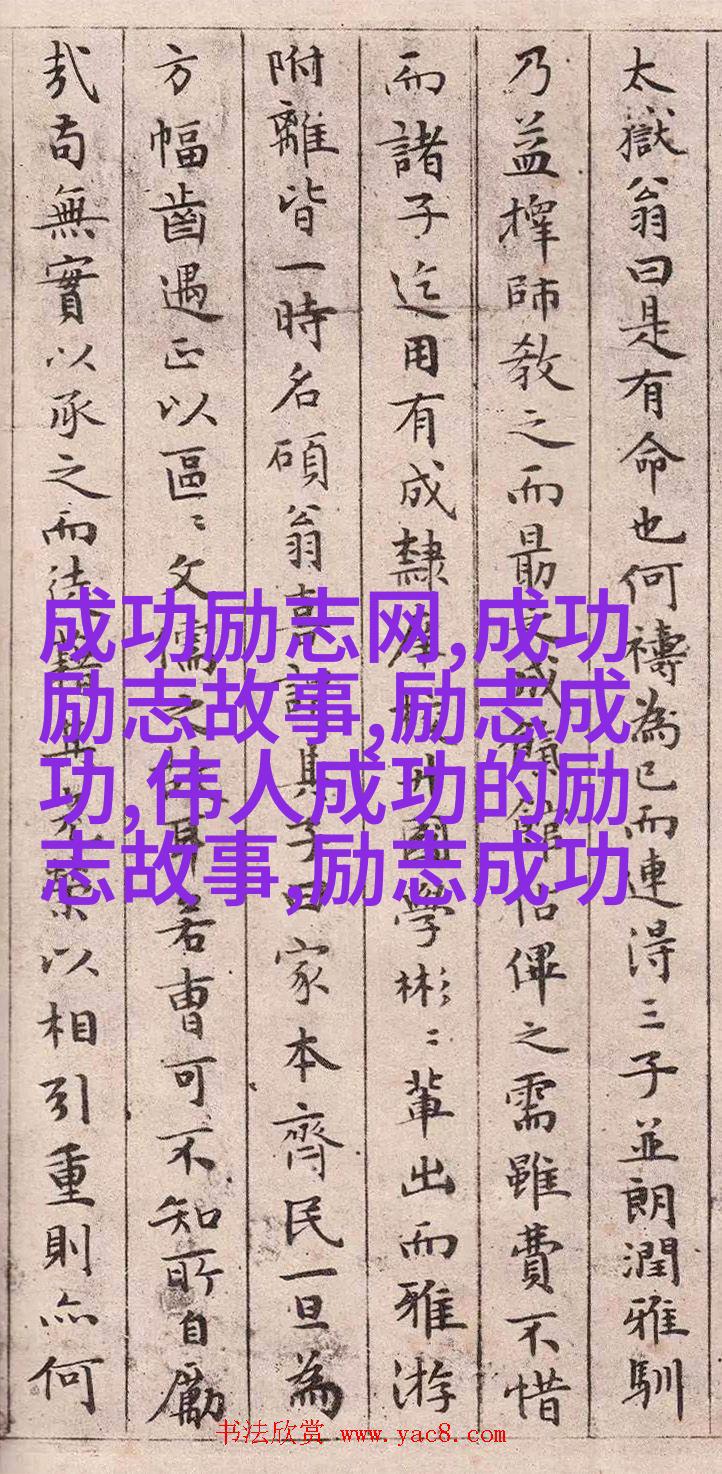 太嶽翁曰是有命也何禱為已而連得三子並朗潤雅馴
乃益擇師教之而最長成 佔俾之需雖費不惜
而諸子迄用有成隸 國學彬〻輩出而雅游
附離皆一時名碩翁喜 其子曰家本齊民一旦為
方幅齒遇正以區〻文儒之 耳若曹可不知所自勵
哉苟無實以承之而徒藉 以相引重則亦何
成功励志网,成功
励志故事,励志成
功,伟人成功的励
志故事,励志成功
书法欣赏 www.yac8.com